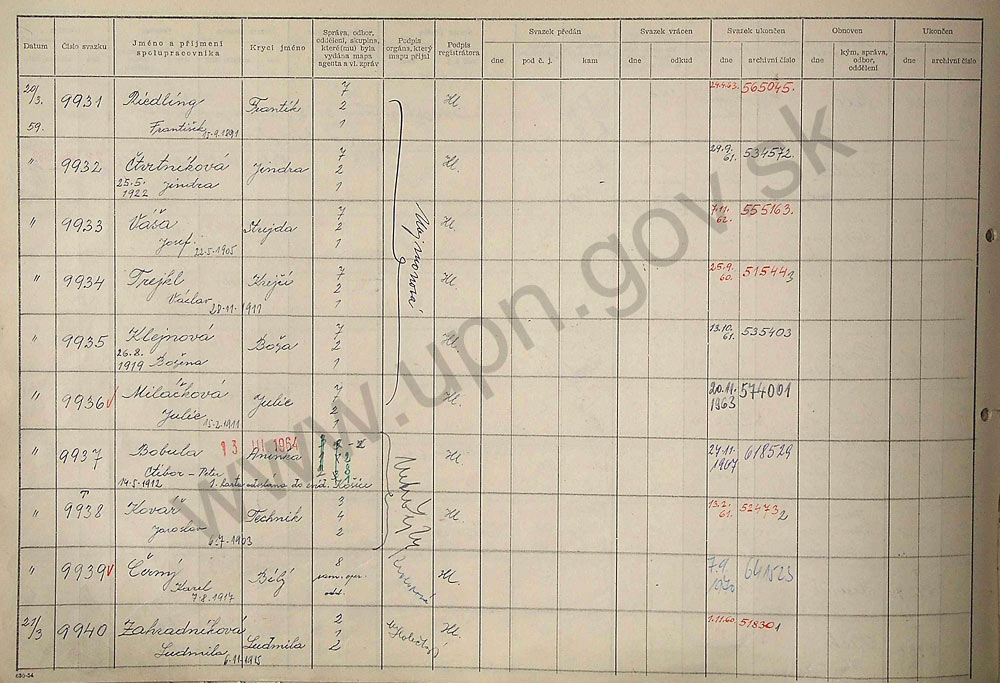 Datum
Číslo svazku
Jméno a příjmení spolupracovníka
Krycí jméno
Správa, odbor, oddělení, skupina, které(mu) byla vydána mapa agenta a vl. zpráv
Podpis orgánu, který mapu přijal
Podpis registrátora
Svazek předán
dne
pod č. j.
kam
Svazek vrácen
dne
odkud
Svazek ukončen
dne
archivní číslo
Obnoven
dne
kým, správa, odbor, oddělení
Ukončen
dne
archivní číslo
20/3. 59. 9931 Riedling František 15.9.1891 Frantík 7 2 1 Hl. 24.4.63. 565045.
" 9932 Čtvrtníková Jindra 25.5. 1922 Jindra 7 2 1 Hl. 29.9. 61. 534572.
" 9933 Váša Josef 22.5.1905 7 2 1 Hl. 7.11. 62. 555163.
" 9934 Trejkl Václav 28.11.1911 Krejčí 7 2 1 Hl. 25.9. 60. 515443
" 9935 Klejnová Božena 26.8. 1919 Boža 7 2 1 Hl. 13.10. 61. 535403
" 9936 Miláčková Julie 15.2.1911 Julie 7 2 1 Hl. 20.11. 1963 574001
" 9937 Bobula Ctibor - Peter 14.5.1912 13 III 1964 Aninka Hl. 27.11. 1967 618529
1. karta odeslána do evid. Košice
" 9938 Kovář Jaroslav 6.7.1903 Technik 3 4 2 Hl. 13.2. 61. 524732
" 9939 Černý Karel 7.8.1917 Bílý 8 sam. oper. odd. Hl. 7.9. 1970 641523
21/3 9940 Zahradníková Ludmila 6.11.1915 Ludmila 2 1 2 Hl 1.11.60. 518301
630-54
www.upn.gov.sk